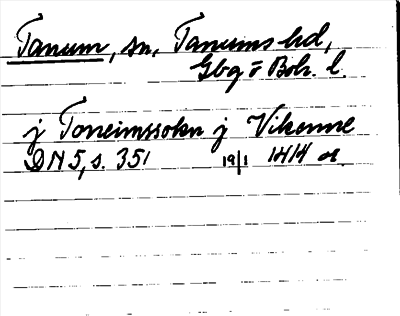 Tanum, sn, Tanums hd,
Gbg o Boh. l.
j Toneimssokn j Vikenne
DN 5, s. 351 19/1 1414 or.